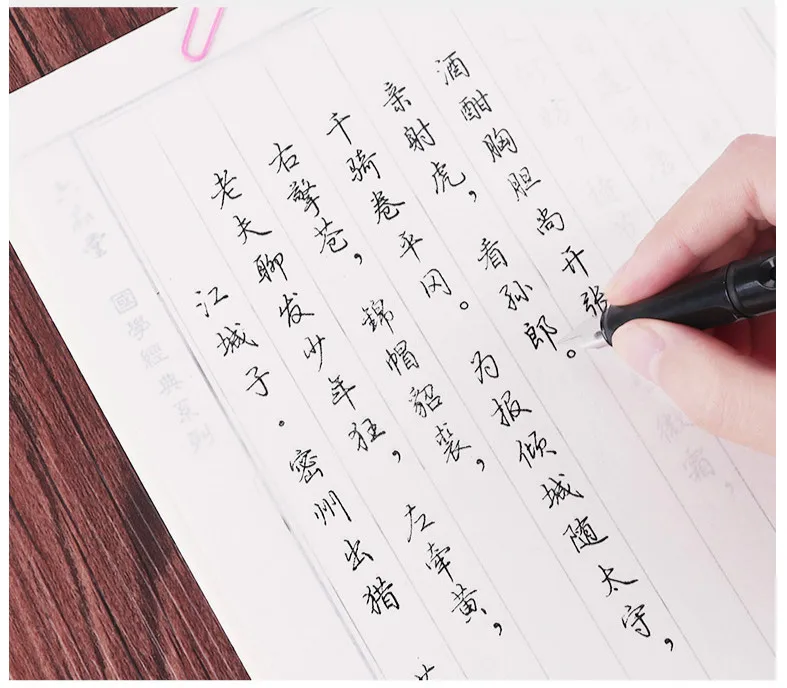 國學經典系列
江城子·密州出猎
老夫聊发少年狂，左牵黄，
右擎苍，锦帽貂裘，
千骑卷平冈。为报倾城随太守，
亲射虎，看孙郎。
酒酣胸胆尚开张
微霜，